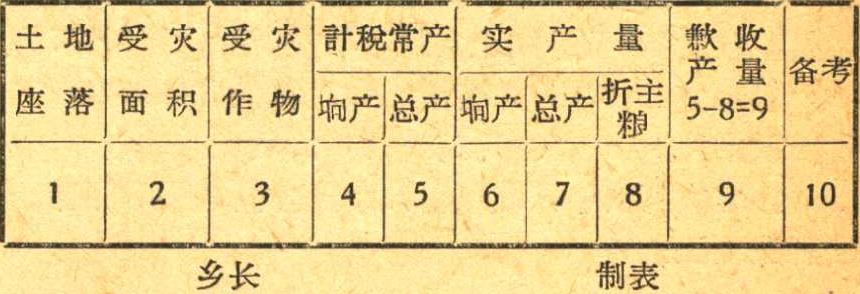 土地 受灾 受灾 計稅常产 实产量 歉收
产量
座落 面积 作物 垧产 总产 垧产 总产 折主粮 5-8=9 备考
1 2 3 4 5 6 7 8 9 10
乡长 制表